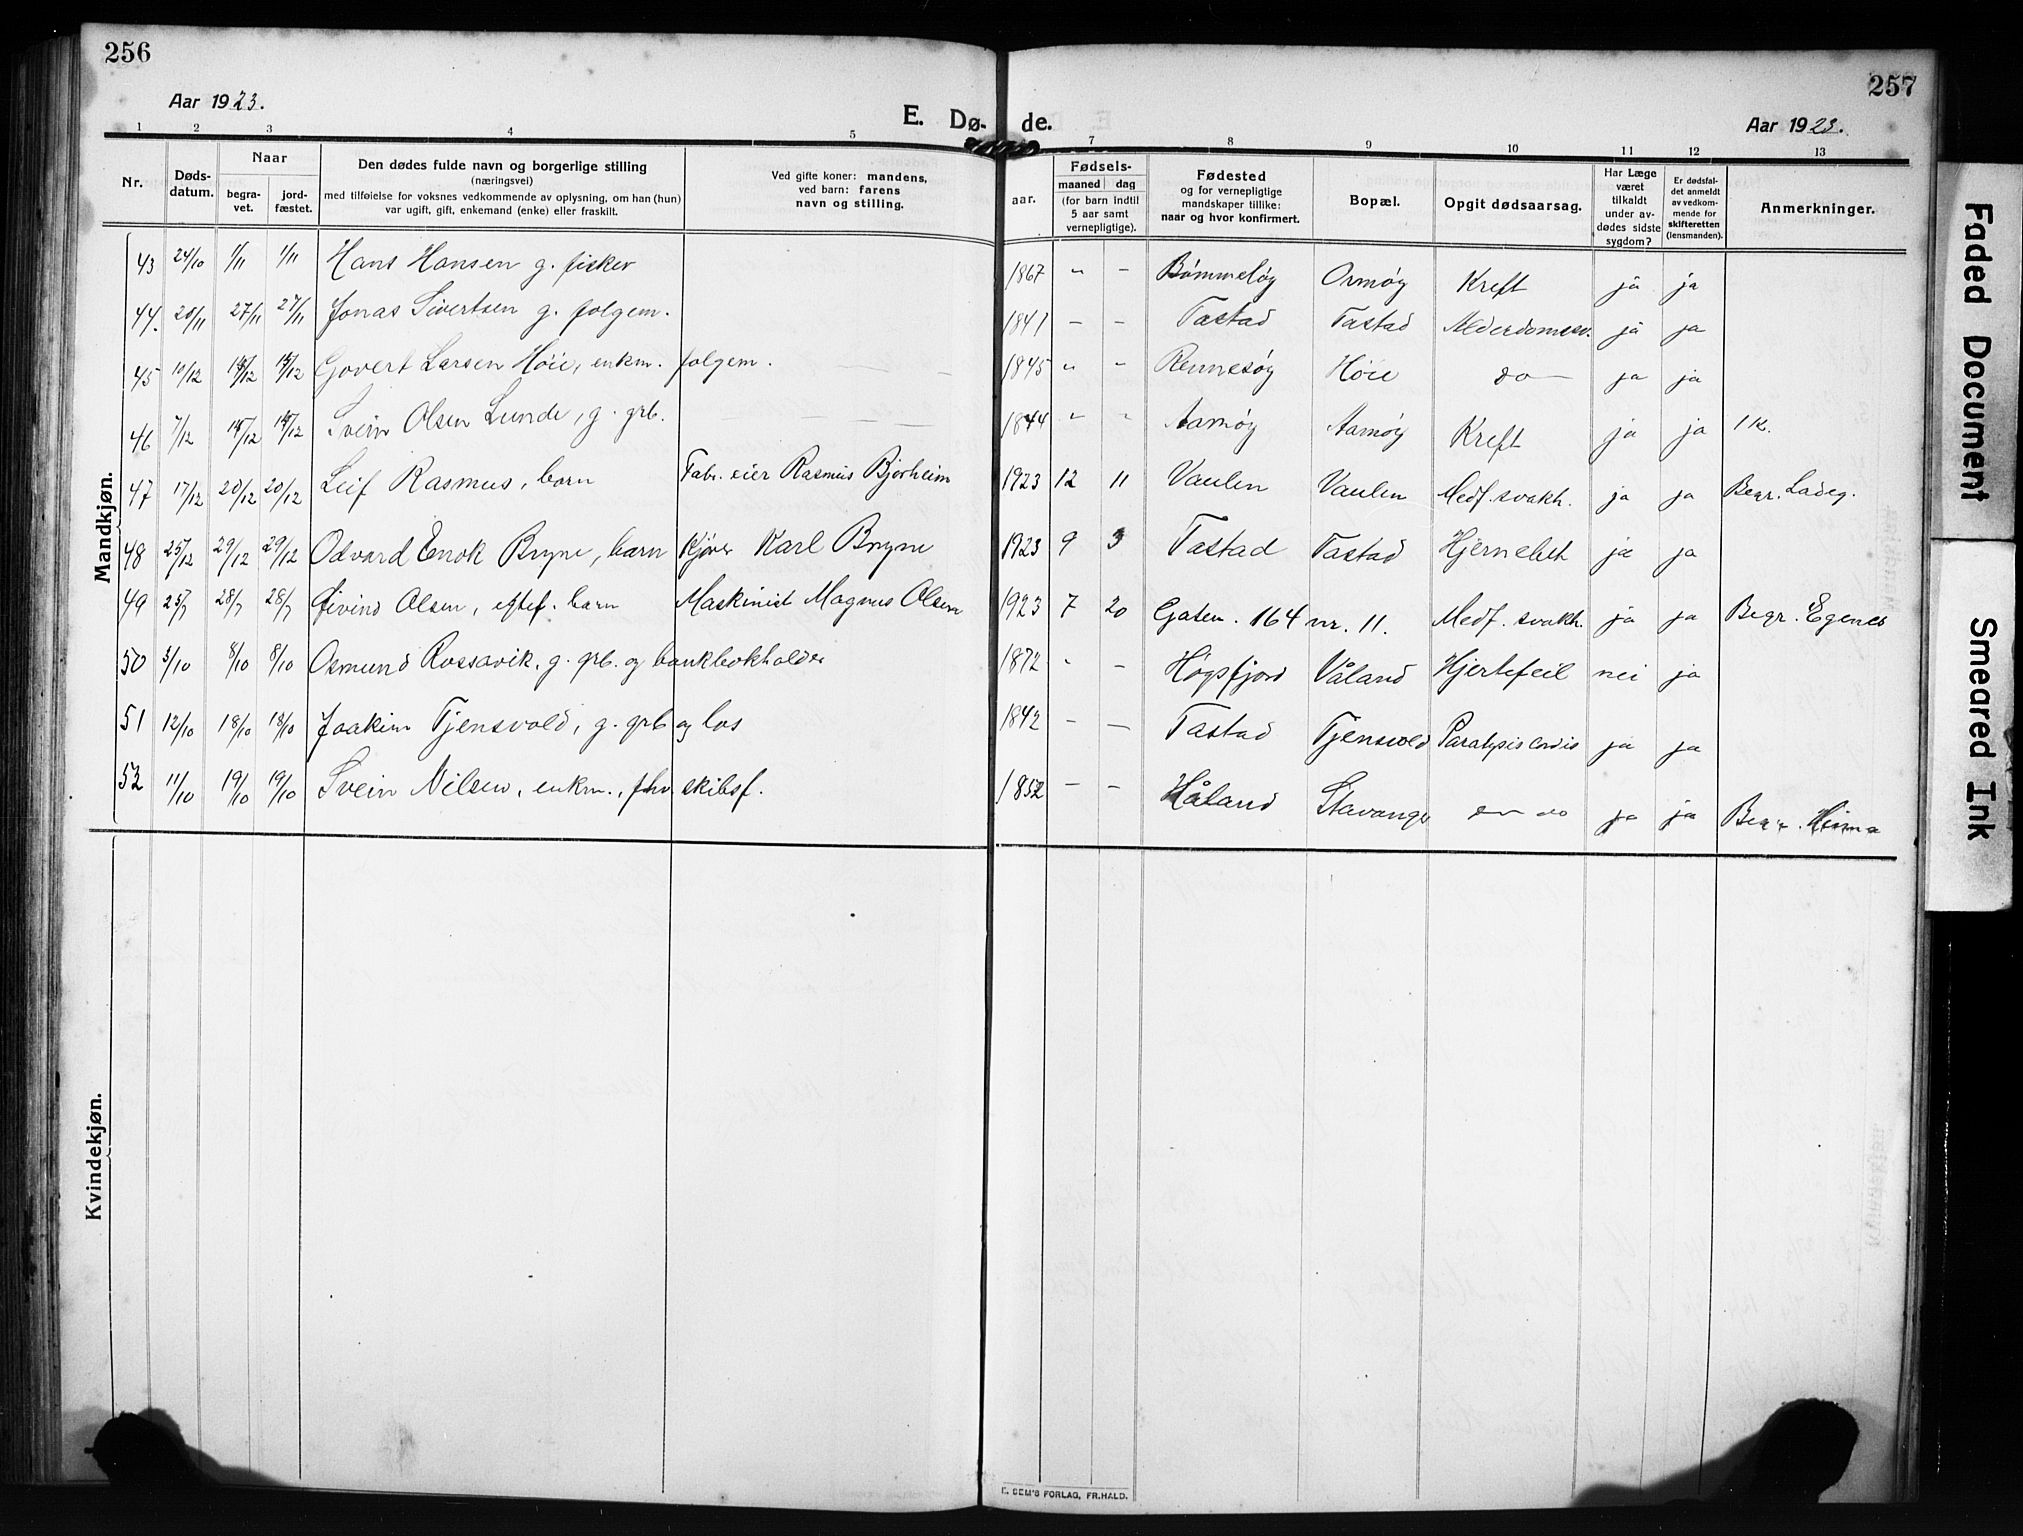 256
257
Aar 1923.
E. Dø- de.
Aar 1923.
1 2 3 4 5 7 8 9 10 11 12 13
Nr.
Døds-
datum.
Naar
begra-
vet.
jord-
fæstet.
Den dødes fulde navn og borgerlige stilling
(næringsvei)
med tilføielse for voksnes vedkommende av oplysning, om han (hun)
var ugift, gift, enkemand (enke) eller fraskilt.
Ved gifte koner: mandens,
ved barn: farens
navn og stilling.
Fødsels-
aar.
maaned dag
(for barn indtil
5 aar samt
vernepligtige).
Fødested
og for vernepligtige
mandskaper tillike:
naar og hvor konfirmert.
Bopæl.
Opgit dødsaarsag.
Har Læge
været
tilkaldt
under av-
dødes sidste
sygdom?
Er dødsfal-
det anmeldt
av vedkom-
mende for
skifteretten
(lensmanden).
Anmerkninger.
Mandkjøn.
43 24/10 1/11 1/11 Hans Hansen g. fisker 1867 " - Bømmeløy Ormøy Kreft ja ja
44. 20/11 27/11 27/11 Jonas Sivertsen g. folgem. 1841 - - Tastad Tastad Alderdomssv. ja ja
45 10/12 /12 /12 Govert Larsen Høie, enkm. folgem. 1845 " - Rennesøy Høie do ja ja
46 7/12 /12 /12 Svein Olsen Lunde, g. grb. 1844 " " Aamøy Aamøy Kreft ja ja 1 K.
47 17/12 20/12 20/12 Leif Rasmus, barn Fabr. eier Rasmus Bjørheim 1923 12 11 Vaulen Vaulen Medf. svakh. ja ja Begr. Ladeg.
48 25/12 29/12 29/12 Odvard Enok Bryne, barn Kjører Karl Bryne 1923 9 3 Tastad Tastad Hjernebet ja ja
49 25/7 28/7 28/7 Øivind Olsen, eftef. barn Maskinist Magnus Olsen 1923 7 20 Gaten. 164 nr. 11. Medf. svakh. ja ja Begr. Egenes
50 3/10 8/10 8/10 Osmund Rossavik, g. grb. og bankbokholder 1872 " - Høgsfjord Våland Hjertefeil nei ja
51 12/10 18/10 18/10 Joakim Tjensvold, g. grb og los 1842 - - Tastad Tjensvold Paralysis cordis ja ja
52 11/10 19/10 19/10 Svein Nilsen, enkm., fhv. skibsf. 1852 - - Håland Stavanger do ja ja Begr. Hinna
Kvindekjøn.
E. SEM'S FORLAG, FR.HALD.
Faded Document
Smeared Ink